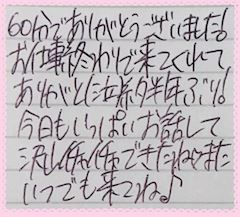 60分でありがとうございました!
お仕事終わりで来てくれて、
ありがとう 半年ぶり!
今日もいっぱいお話して
沢山イチャイチャできたねまた
いつでも来てね♪